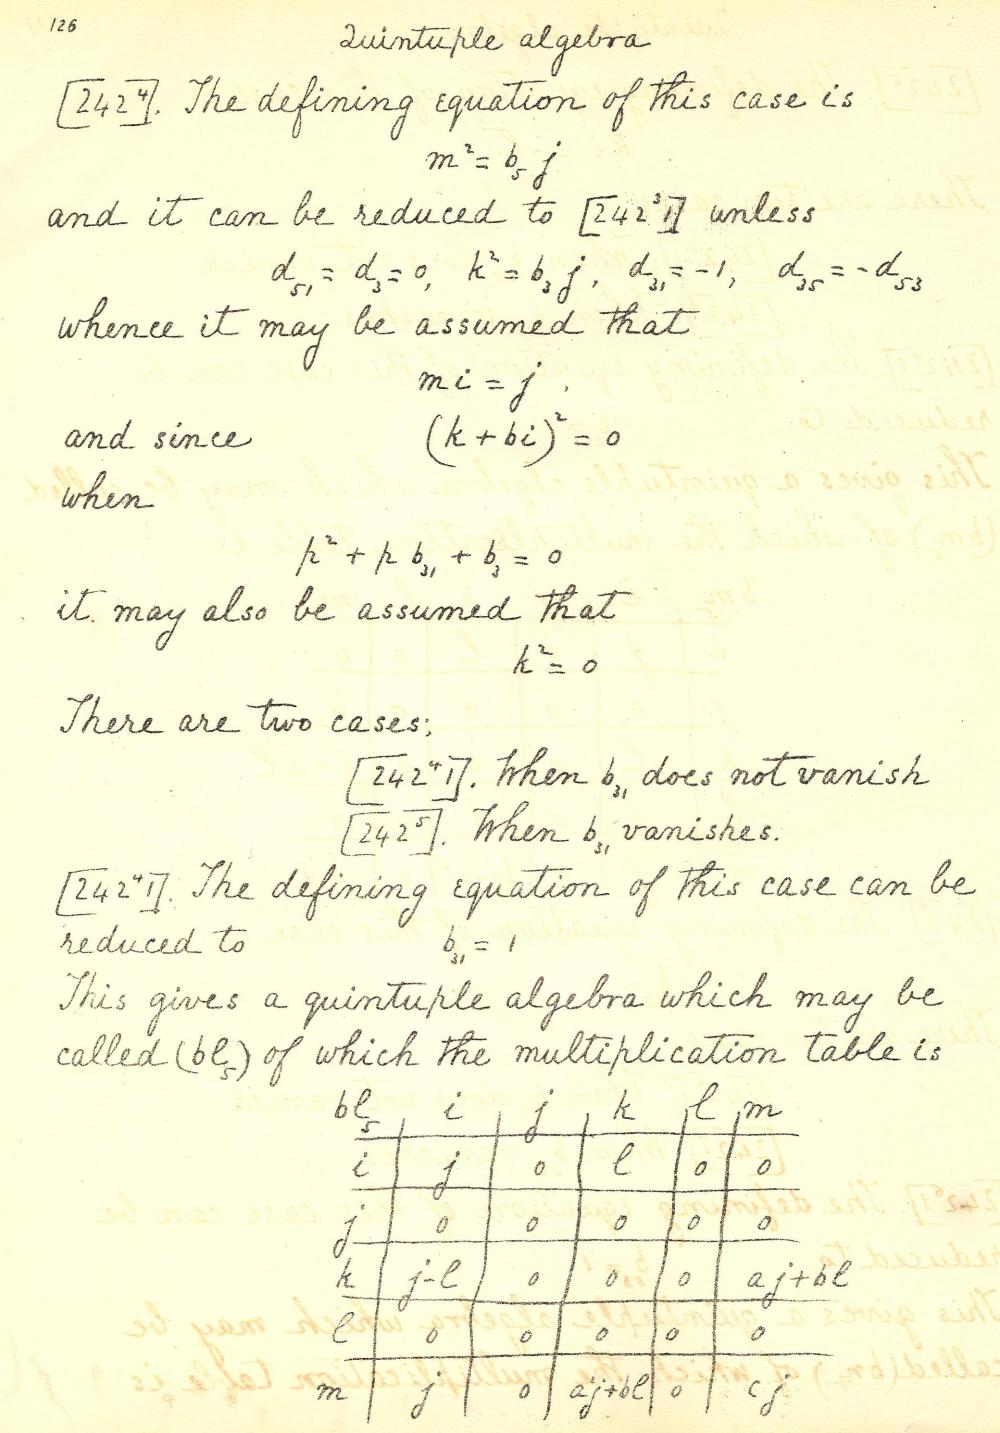 126
Quintuple algebra
[242⁴]. The defining equation of this case is
m² = b₅ j
and it can be reduced to [242³1] unless
d₅₁ = d₃ = 0, k² = b₃ j, d₃₁ = -1, d₃₅ = -d₅₃
whence it may be assumed that
mi = j.
and since (k + bi)² = 0
when
p² + p b₃₁ + b₃ = 0
it may also be assumed that
k² = 0
There are two cases;
[242⁴1]. When b₃₁ does not vanish
[242⁵]. When b₃₁ vanishes.
[242⁴1]. The defining equation of this case can be
reduced to b₃₁ = 1
This gives a quintuple algebra which may be
called (bl₅) of which the multiplication table is
bl₅ i j k l m
i j 0 l 0 0
j 0 0 0 0 0
k j-l 0 0 0 aj+bl
l 0 0 0 0 0
m j 0 a'j+bl 0 cj